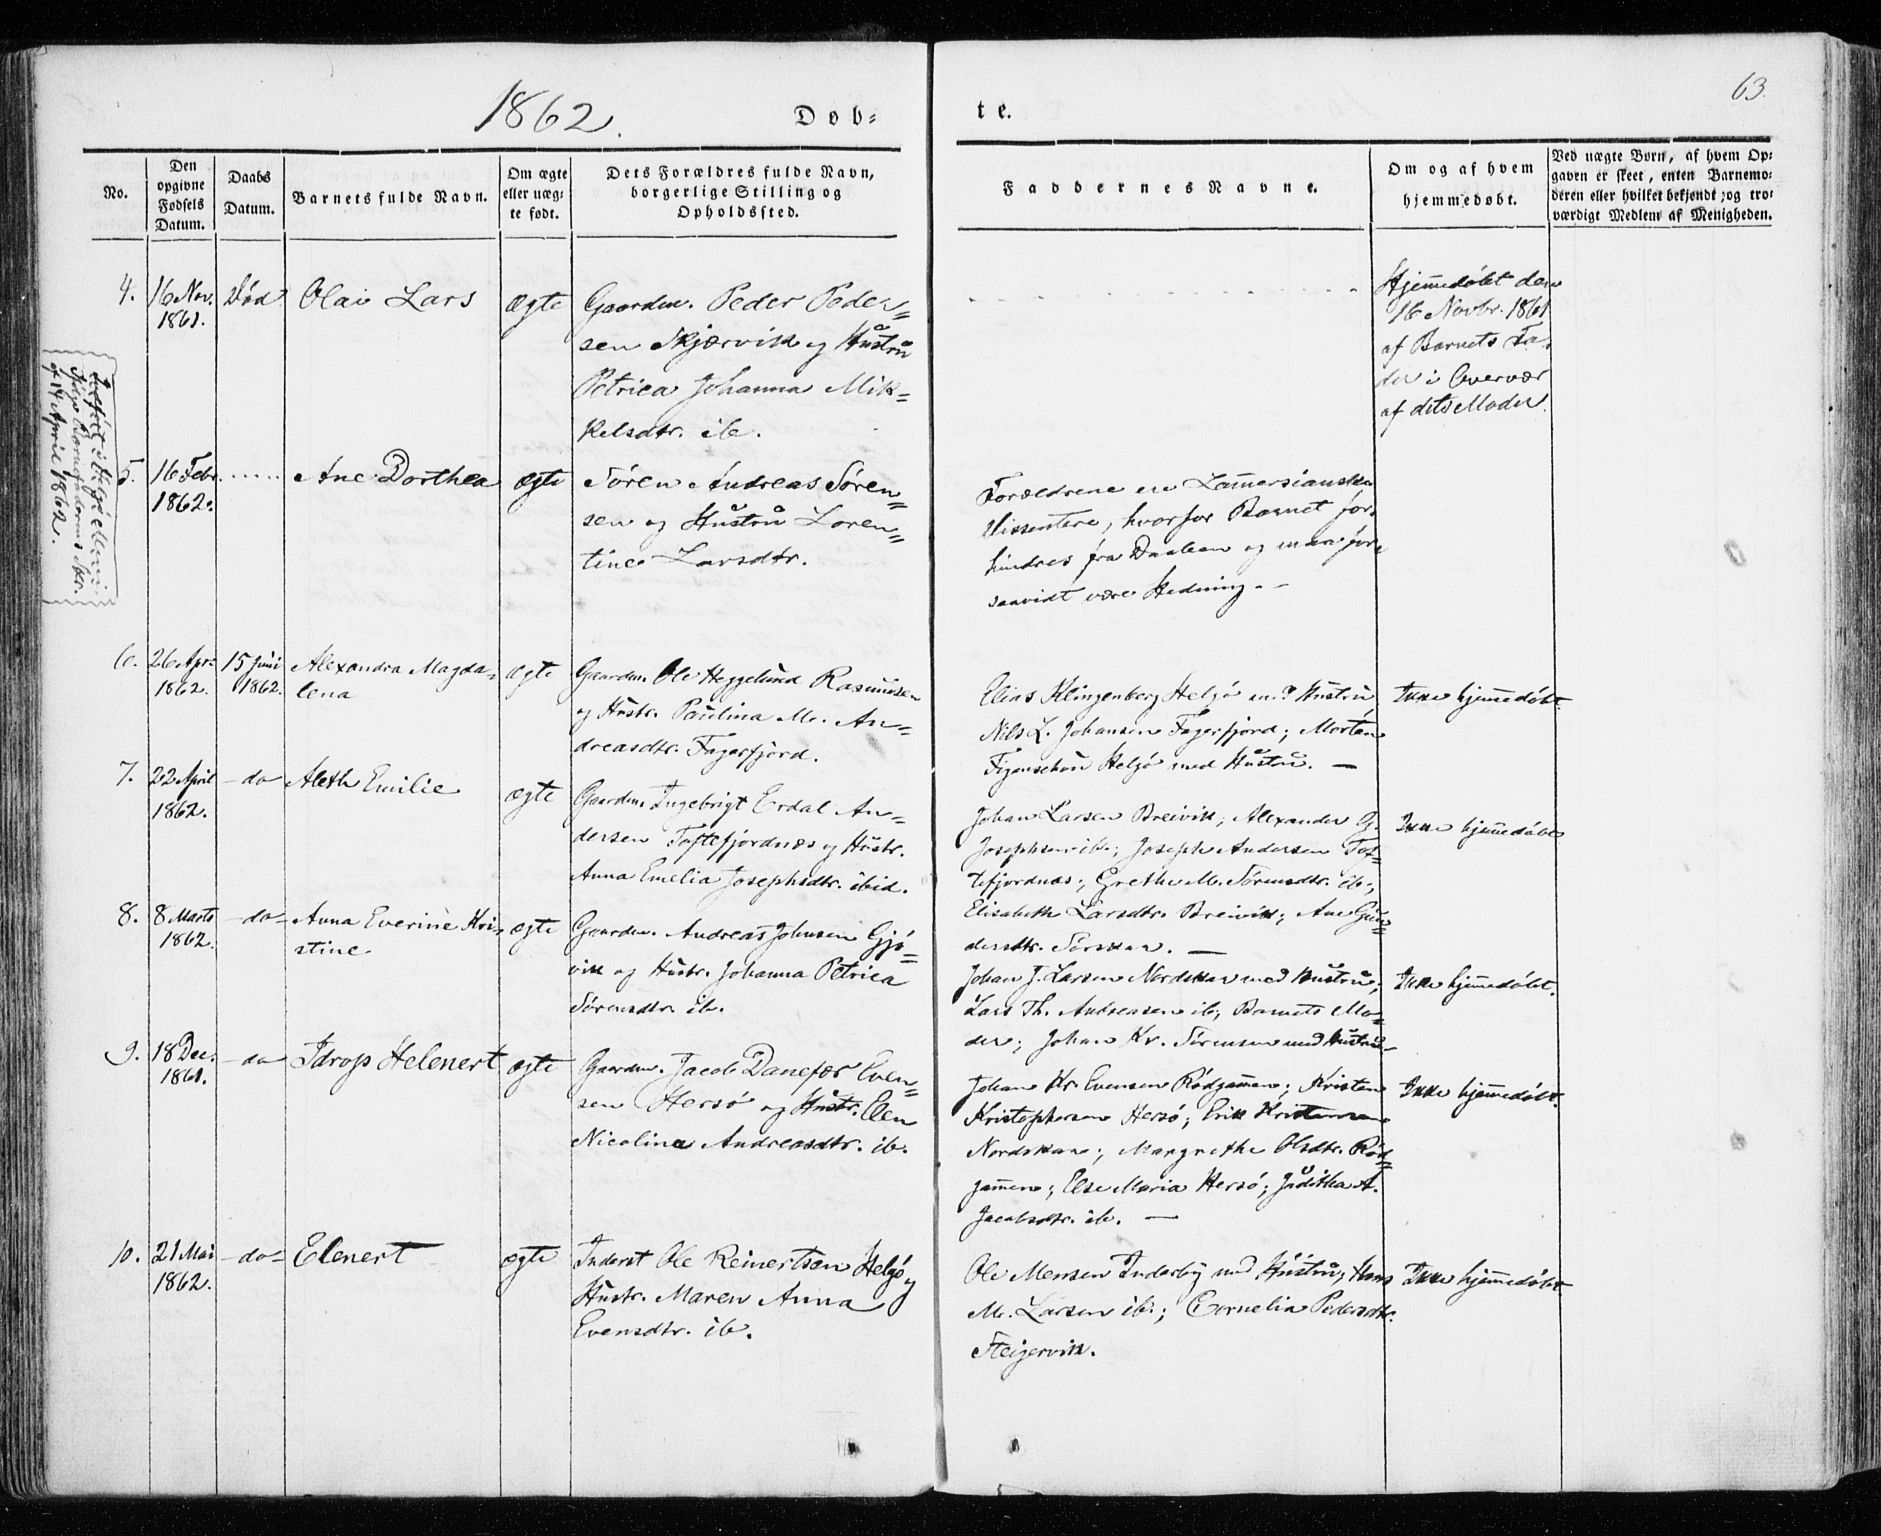 63.
1862. Døb- te.
No.
Den opgivne Fødsels Datum.
Daabs Datum.
Barnets fulde Navn.
Om ægte eller uæg- te født.
Dets Forældres fulde Navn, borgerlige Stilling og Opholdssted.
Faddernes Navne.
Om og af hvem hjemmedøbt.
Ved uægte Børn, af hvem Op- gaven er skeet, enten Barnemo- deren eller hvilket bekjendt og tro- værdigt Medlem af Menigheden.
4. 16 Nov. 1861. Død Olai Lars ægte
Gaardm. Peder Peder-
sen Skjærvik og Hustru
Petrica Johanna Mik-
kelsdtr. ib.
Hjemmedøbt den
16 Novbr. 1861
af Barnets Fa-
der i Overvær
af dets Moder.
af 14 April 1862.
5. 16 Febr. 1862. ..... Ane Dorthea ægte
Søren Andreas Søren-
sen og Hustru Loren-
tine Larsdtr.
Forældrene ere Lammersianske
Dissentere, hvorfor Barnet for-
hindres fra Daaben og maa for-
saavidt være Hedning. -
6. 26 Apr. 1862. 15 Juni 1862. Alexandra Magda-
lena ægte
Gaardm. Ole Heggelund Rasmussen
og Hustr. Paulina M. An-
dreasdtr. Fagerfjord.
Elias Klingenberg Helgø m. Hustru,
Nils L. Johansen Fagerfjord; Morten
Figenschou Helgø med Hustru. —
Ikke hjemmedøbt.
7. 22 April 1862. - do Aleth Emilie ægte
Gaardm. Ingebrigt Erdal An-
dersen Toftefjordnæs og Hustr.
Anna Emelia Josephsdtr. ibid.
Johan Larsen Breivik; Alexander G.
Josephsen ib.; Joseph Andersen Tof-
tefjordnæs; Grethe M. Sørensdtr. ib.;
Elisabeth Larsdtr. Breivik; Ane Gun-
dersdtr. Sørskar. —
Ikke hjemmedøbt
8. 8 Marts 1862. - do - Anna Everine Kri-
stine ægte
Gaardm. Andreas Johnsen Gjø-
vik og Hustr. Johanna Petrica
Sørensdtr. ib.
Johan J. Larsen Nordskar med Hustru;
Lars Th. Andreasen ib; Barnets Mo-
der; Johan Kr. Sørensen med Hustru.
Ikke hjemmedøbt.
9. 18 Dec. 1861. - do Idrop Helenert ægte
Gaardm. Jacob Danefær Even-
sen Hersø og Hustr. Elen
Nicolina Andreasdtr. ib.
Johan Kr. Evensen Rødgammen; Kristen
Kristophersen Hersø; Erik Kristensen
Nordskar; Margrethe Olsdtr. Rød-
gammen; Else Maria Hersø; Juditha A.
Jacobsdtr. ib. —
Ikke hjemmedøbt.
10. 21 Mai 1862. - do - Elenert ægte
Inderst Ole Reinertsen Helgø og
Hustr. Maren Anna
Evensdtr. ib.
Ole Mensen Inderby med Hustru; Hans
M. Larsen ib.; Cornelia Pedersdtr.
Steigervik.
Ikke hjemmedøbt